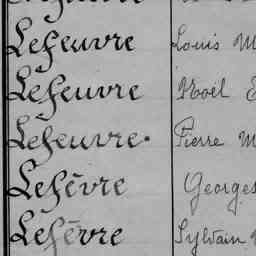 Lefeuvre Louis M
Lefeuvre Noël
Lefeuvre. Pierre M
Lefèvre Georges
Lefèvre Sylvain